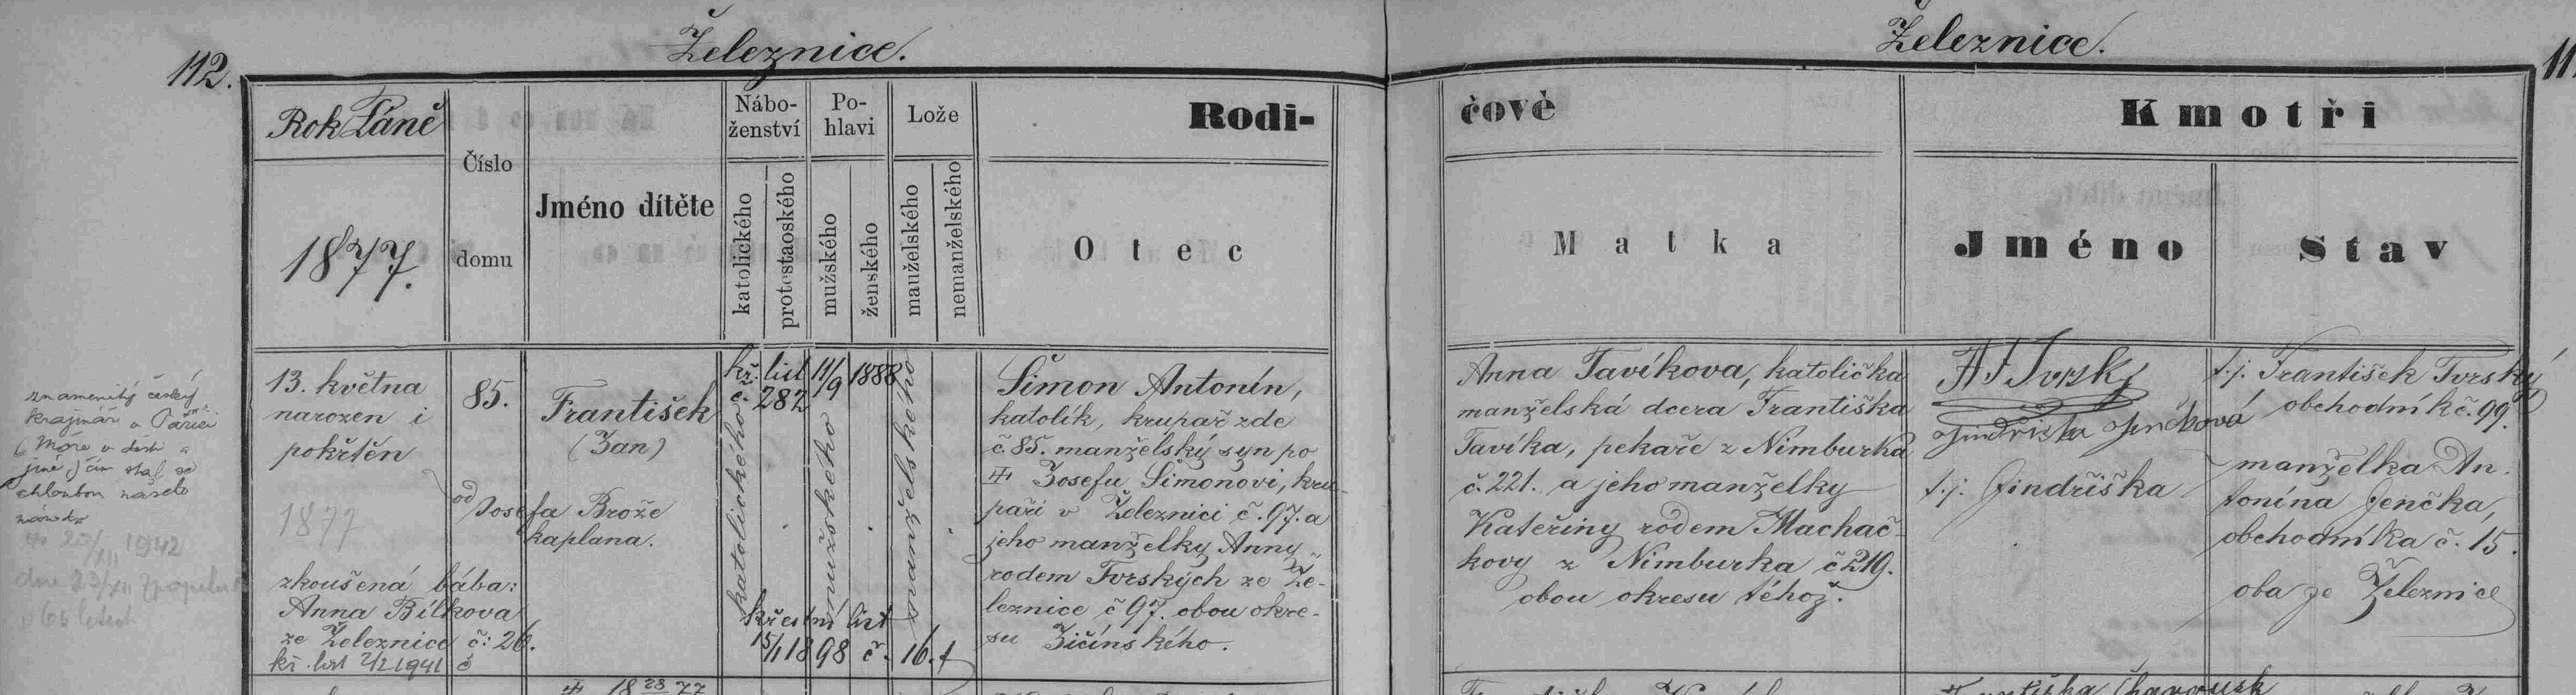 Železnice.
Železnice.
112.
11
Rok Páně
1877.
Číslo
domu
Jméno dítěte
Nábo-
ženství
katolického
protestaoského
Po-
hlavi
mužského
ženského
Lože
mauželského
nemanželského
Rodi-
čové
Otec
Matka
Kmotři
Jméno
Stav
13. května
narozen i
pokřtěn
1877
zkoušená bába:
Anna Bílkova
ze Železnice č: 26.
kř. list 2/2 1941 č
85.
František
(Jan)
od Josefa Brože
kaplana.
kř. list 11/9 1888
č. 282
katolického
mužského
manželského
křestní list
15/1 1898 č. 16.
Šimon Antonín,
katolík, krupař zde
č. 85. manželský syn po
Josefu Šimonovi, kru-
paři v Železnici č. 97. a
jeho manželky Anny
rodem Tvrských ze Že-
leznice č 97. obou okre-
su Jičínského.
Anna Tavíkova, katolička
manželská dcera Františka
Tavíka, pekaře z Nimburka
č. 221. a jeho manželky
Kateřiny rodem Machač-
kovy z Nimburka č 219.
obou okresu téhož.
Tvrský
Jindřiška Jenčková
t.j. Jindřiška
t.j. František Tvrský
obchodník č. 99.
manželka An-
tonína Jenčka,
obchodníka č. 15.
oba ze Železnice
znamenitý český
krajinář
Moře
jiné) čím stal se
chloubou našeho
1942
dne 23/XII
18 28 77